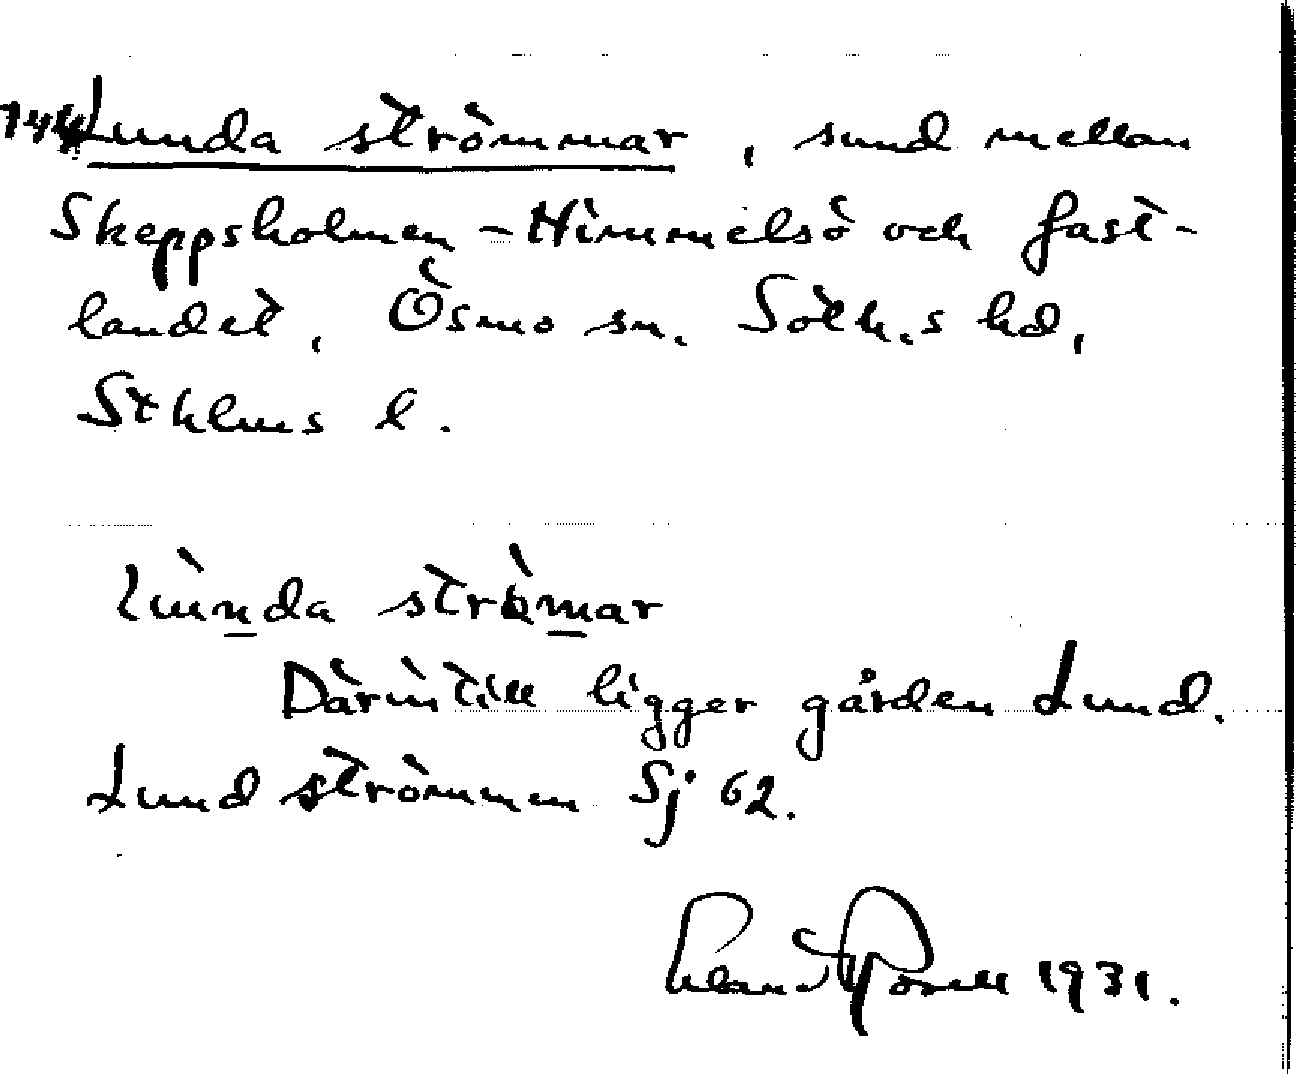 144 Lunda strömmar, sund mellan
Skeppsholmen - Himmelsö och fast-
landet, Ösmo sn. Soth.s hd,
Sthlms l.
strömar
Därintill ligger gården Lund.
Lund strömmen Sj 62.
1931.